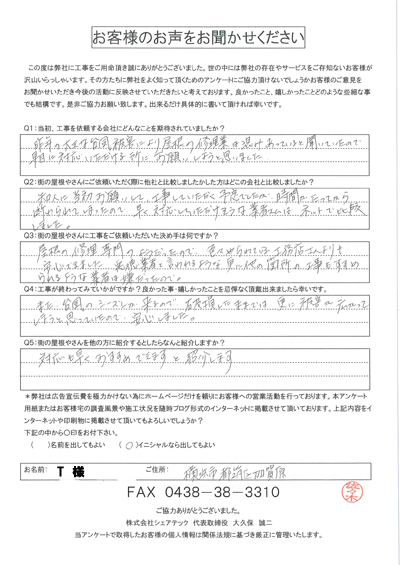 お客様のお声をお聞かせください
この度は弊社に工事をご用命頂き誠にありがとうございました。世の中には弊社の存在やサービスをご存知ないお客様が
沢山いらっしゃいます。その方たちに弊社をよく知って頂くためのアンケートにご協力頂けないでしょうかお客様のご意見を
お聞かせいただき今後の活動に反映させていただきたいと考えております。良かったこと、嬉しかったことどのような些細な事
でも結構です。是非ご協力お願い致します。出来るだけ具体的に書いて頂ければ幸いです。
Q1:当初、工事を依頼する会社にどんなことを期待されていましたか?
昨年の大きな台風被害により屋根の修理業は混みあっていると聞いていたので
早急に対応いただける所にお願いしようと思いました
Q2:街の屋根やさんにご依頼いただく際に他社と比較しましたかした方はどこの会社と比較しましたか?
知人に当初お願いして、工事していただく予定でしたが、時間がたってから
断わられてしまったので、早く対応していただけそうな業者さんはネットで比較
しました。
Q3:街の屋根やさんに工事をご依頼いただいた決め手は何ですか?
屋根の修理専門のようだったので、
安心できました
られるような業者は嫌だったので。
Q4:工事が終わってみていかがですか?良かった事・嬉しかったことを忌憚なく頂戴出来ましたら幸いです。
また、台風のシーズンが来るので、破損したままでは更に被害が広がって
しまうと思っていたので、安心しました。
Q5:街の屋根やさんを他の方に紹介するとしたらなんと紹介しますか?
対応も早くおすすめできますと紹介します
*弊社は広告宣伝費を極力かけない為にホームページだけを頼りにお客様への営業活動を行っております。本アンケート
用紙またはお客様宅の調査風景や施工状況を随時ブログ形式のインターネットに掲載させて頂いております。上記内容をイ
ンターネットや印刷物に掲載させて頂いてもよろしいでしょうか?
下記の中から〇印をお付下さい。
( )名前を出してもよい (〇)イニシャルなら出してもよい
お名前: T 様 ご住所: 横浜市都筑区加賀原
FAX 0438-38-3310
ご協力ありがとうございました。
株式会社シェアテック 代表取締役 大久保 誠二
当アンケートで取得したお客様の個人情報は関係法規に基づき厳正に管理いたします。